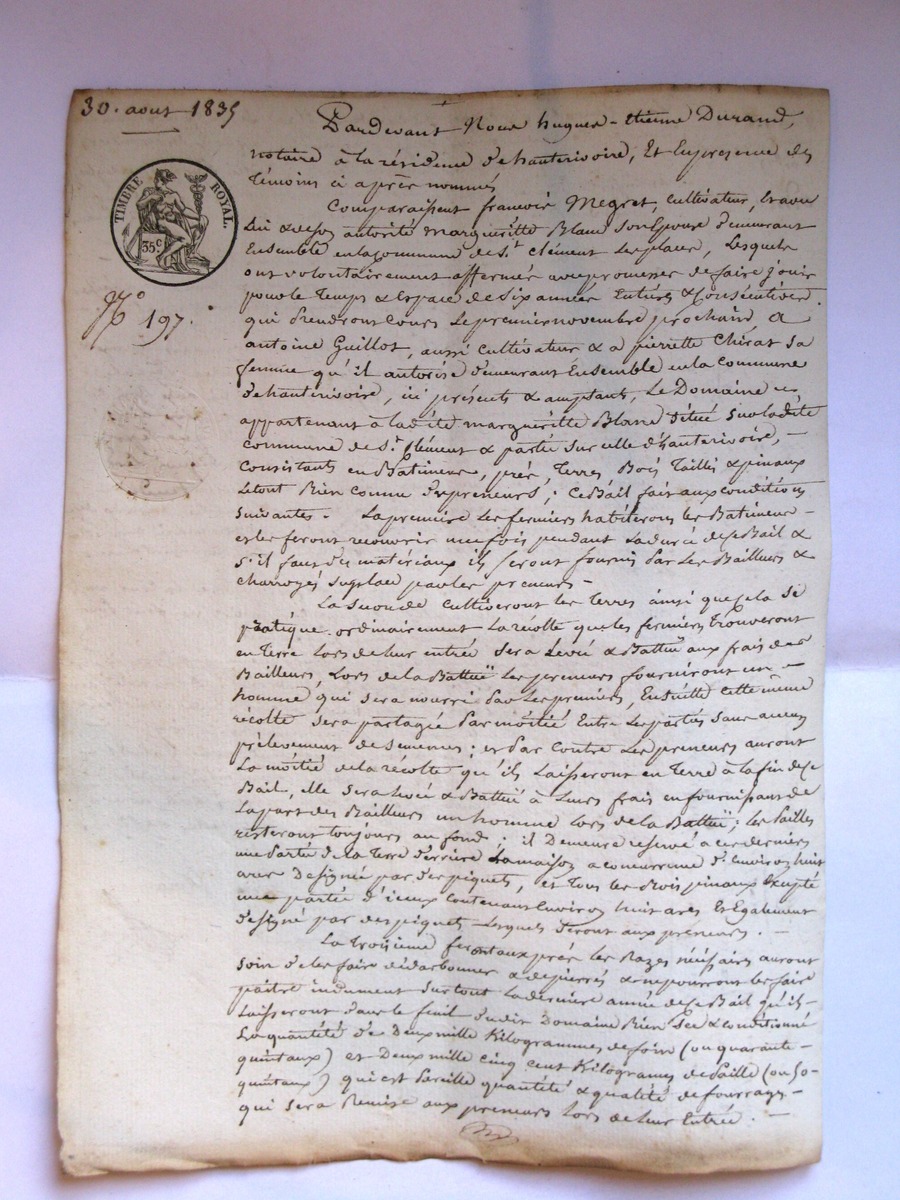 30. aout 1835
Pardevant Nous hugues-étienne Durand,
notaire à la résidence d'hauterivoire, Et En presence des
Témoins ci après nommés
TIMBRE ROYAL
35 c
Comparaissent francois Megret, cultivateur, Et avec
Lui & de son autorité marguerite Blanc son Epouse demeurant
Ensemble en la commune de St. Clément les places, Lesquels
ont volontairement affermés avec promesses de faire jouir
pour le Temps & Espace de six années Entières & Consécutives
qui prendront cours Le premier novembre prochain a
N° 197.
antoine Guillot, aussi cultivateur & a pierrette Chirat sa
femme qu'il autorise demeurant Ensemble en la commune
d'hauterivoire, ici présents & acceptants, Le Domaine
appartenant à la dite marguerite Blanc situé sur la dite
commune de St. Clément & partie sur celle d'hauterivoire,
Consistants en Batiments, prés, Terres, Bois Taillis & pinaux
Le tout Bien connu des preneurs; ce Bail fait aux conditions
suivantes. La premiere Les fermiers habiteront les Batiments
et les feront recouvrir une fois pendant La durée de ce Bail &
s'il faut des matériaux ils seront fournis par Les Bailleurs &
charroyés sur place par les preneurs
La seconde cultiveront les Terres ainsi que cela se
pratique ordinairement La récolte que les fermiers trouveront
en Terre lors de leur entrée sera Levée & Battue aux frais des
Bailleurs, Lors de la Battue les preneurs fourniront un
homme qui sera nourri par Les premiers, Ensuite cette même
récolte sera partagée par moitié Entre les parties sans aucun
prélevement de semences; et par contre Les preneurs auront
La moitié de la récolte qu'ils Laisseront en Terre à la fin de ce
Bail, elle sera Levée & Battue à Leurs frais en fournissant de
La part des Bailleurs un homme lors de la Battue; les pailles
resteront toujours au fond; il Demeure reservé a ces derniers
une partie de la Terre derrière La maison a concurrence d'Environ huit
ares designée par des piquets, et Tous les Bois pinaux Excepté
une partie d'iceux contenant Environ huit ares Et Egalement
designé par des piquets Lesquels seront aux preneurs.
La Troisieme feront aux prés les Razes nécessaires auront
soin de les faire dédarbonner & depierrés & ne pourront les faire
paitre indument surtout La derniere année de ce Bail qu'ils
Laisseront dans le fenil du dit Domaine Bien sec & conditionné
La quantité de Deux mille Kilogrammes de foin (ou quarante
quintaux) et Deux mille cinq cent Kilogrammes de Paille (ou 50
quintaux) qui est Pareille quantité & qualité de fourrages
qui sera Remise aux preneurs lors de leur Entrée.